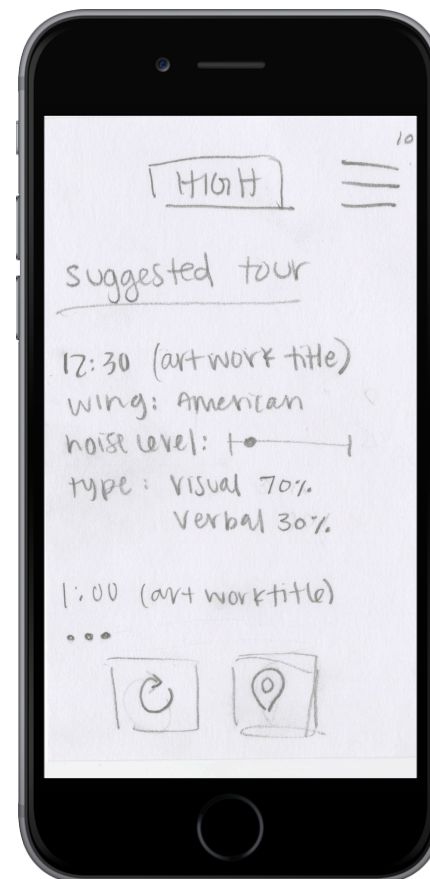 10
HIGH
suggested tour
12:30 (artwork title)
wing: American
noise level:
type: visual 70%
verbal 30%
1:00 (artwork title)
...